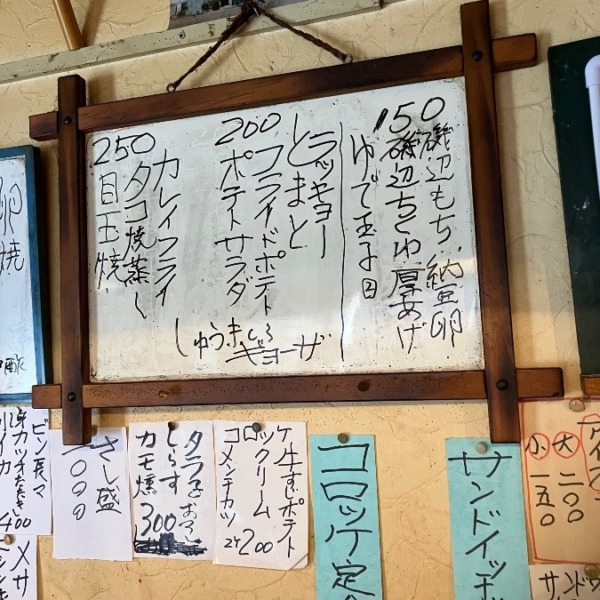 150
磯辺もち、納豆卵
磯辺ちくわ、厚あげ
ゆで玉子2
ラッキョー
とまと
200
フライドポテト
ポテトサラダ
しゅうまい
ギョーザ
カレイフライ
250
タコ焼蒸し
目玉焼
卵焼
酢
ケ牛すじポテト
ロックリーム
コメンチカツ
2ケ200
タラ子おろし
しらす
カモ燻
300
さし盛
1000
ビン長マ
カツオたたき
イカ
400
コロッケ定
サンドイッチ
アイス
大 二〇〇
小 一五〇
メサ
サンドウ